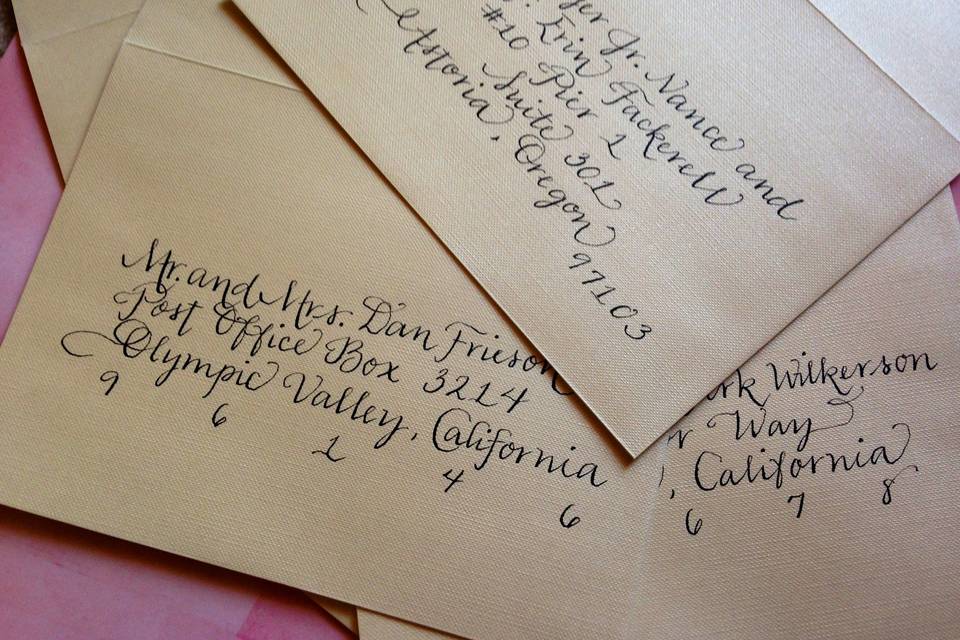 Jr. Nance and
Erin Fackerell
#10 Pier 1
Suite 301
Astoria, Oregon
97103
Mr. and Mrs. Dan Frieson
Post Office Box 3214
Olympic Valley, California
9 6 1 4 6
Wilkerson
Way
, California
6 7 8